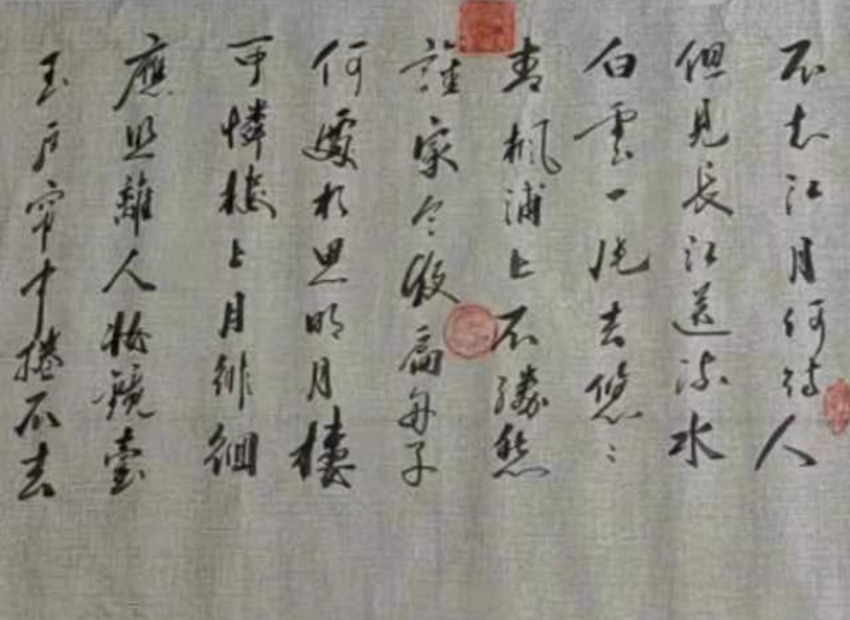 不知江月何待人
但見長江送流水
白雲一片去悠悠
青楓浦上不勝愁
誰家今夜扁舟子
何處相思明月樓
可憐樓上月徘徊
應照離人妝鏡臺
玉戶帘中捲不去